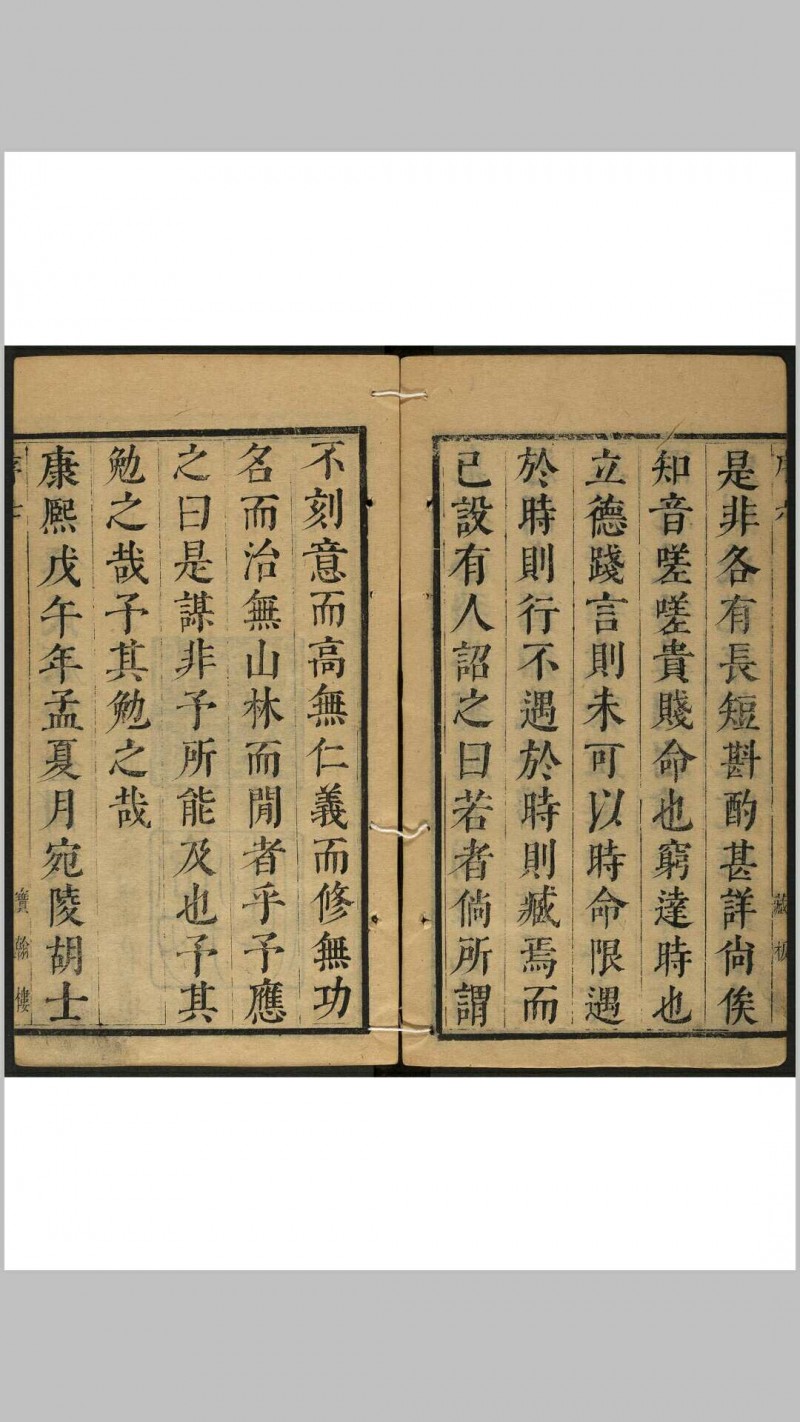 是非各有長短斟酌甚詳尙俟
知音嗟嗟貴賤命也窮達時也
立德踐言則未可以時命限遇
於時則行不遇於時則臧焉而
已設有人詔之曰若者倘所謂
不刻意而高無仁義而修無功
名而治無山林而閒者乎予應
之曰是謀非予所能及也予其
勉之哉予其勉之哉
康熙戊午年孟夏月宛陵胡士
寶翰樓